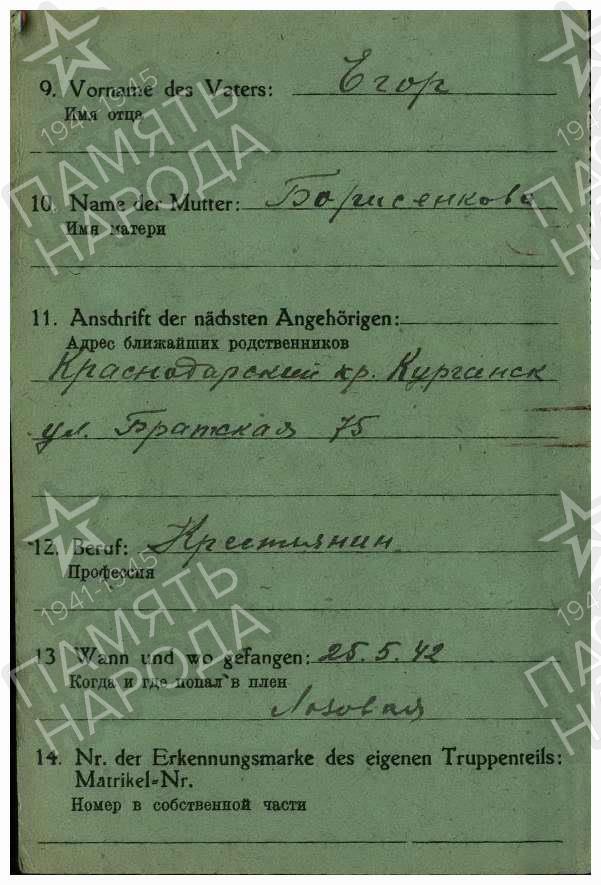 9. Vorname des Vaters: Егор
Имя отца
10. Name der Mutter: Борисенкова
Имя матери
11. Anschrift der nächsten Angehörigen:
Адрес ближайших родственников
Краснодарский кр. Курганск
ул. Братская 75
12. Beruf: Крестьянин
Профессия
13 Wann und wo gefangen: 25.5.42
Когда и где попал в плен
Лозовая
14. Nr. der Erkennungsmarke des eigenen Truppenteils:
Matrikel-Nr.
Номер в собственной части
1941-1945
ПАМЯТЬ
НАРОДА
1941-1945
ПАМЯТЬ
НАРОДА